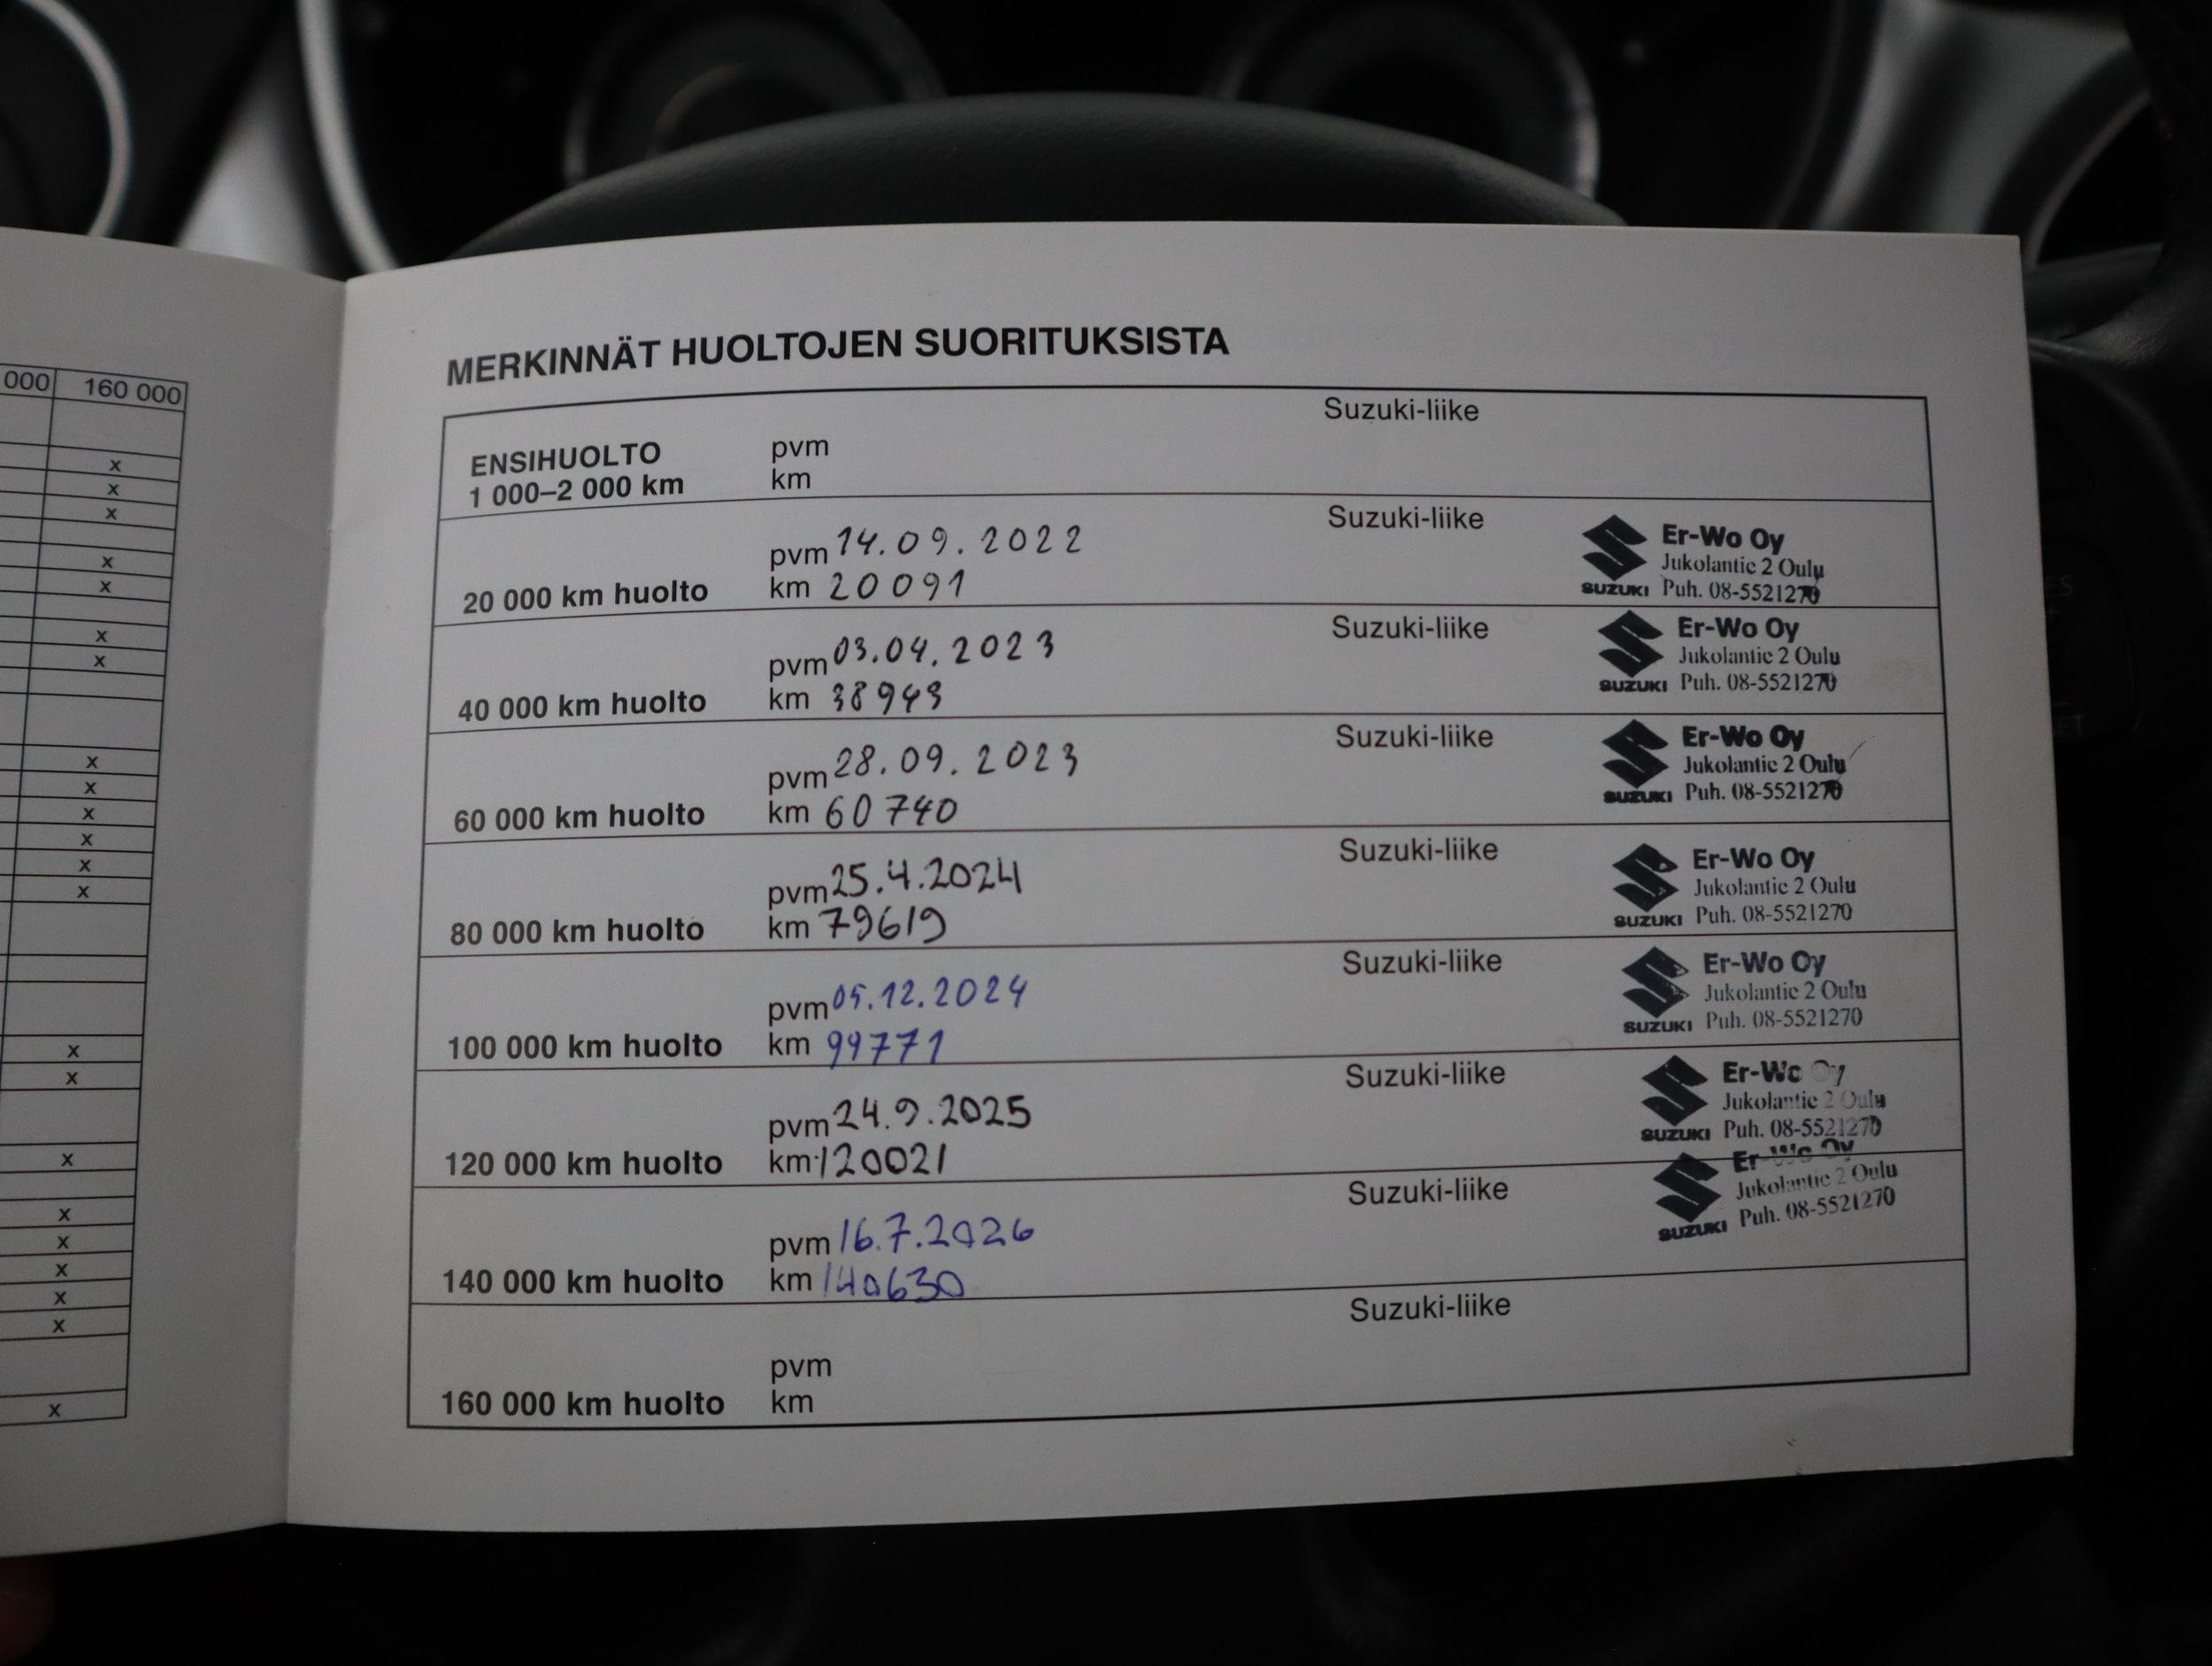 000 160 000
x
x
x
x
x
x
x
x
x
x
x
x
x
x
x
x
x
x
x
x
x
x
MERKINNÄT HUOLTOJEN SUORITUKSISTA
Suzuki-liike
ENSIHUOLTO pvm
1 000–2 000 km km
Suzuki-liike Er-Wo Oy
pvm 14.09.2022 Jukolantie 2 Oulu
20 000 km huolto km 20091 SUZUKI Puh. 08-5521270
Suzuki-liike Er-Wo Oy
pvm 03.04.2023 Jukolantie 2 Oulu
40 000 km huolto km 38943 SUZUKI Puh. 08-5521270
Suzuki-liike Er-Wo Oy
pvm 28.09.2023 Jukolantie 2 Oulu
60 000 km huolto km 60740 SUZUKI Puh. 08-5521270
Suzuki-liike Er-Wo Oy
pvm 25.4.2024 Jukolantie 2 Oulu
80 000 km huolto km 79619 SUZUKI Puh. 08-5521270
Suzuki-liike Er-Wo Oy
pvm 05.12.2024 Jukolantie 2 Oulu
100 000 km huolto km 99771 SUZUKI Puh. 08-5521270
Suzuki-liike Er-Wo Oy
pvm 24.9.2025 Jukolantie 2 Oulu
120 000 km huolto km 120021 SUZUKI Puh. 08-5521270
Suzuki-liike Er-Wo Oy
pvm 16.7.2026 Jukolantie 2 Oulu
140 000 km huolto km 140630 SUZUKI Puh. 08-5521270
Suzuki-liike
pvm
160 000 km huolto km